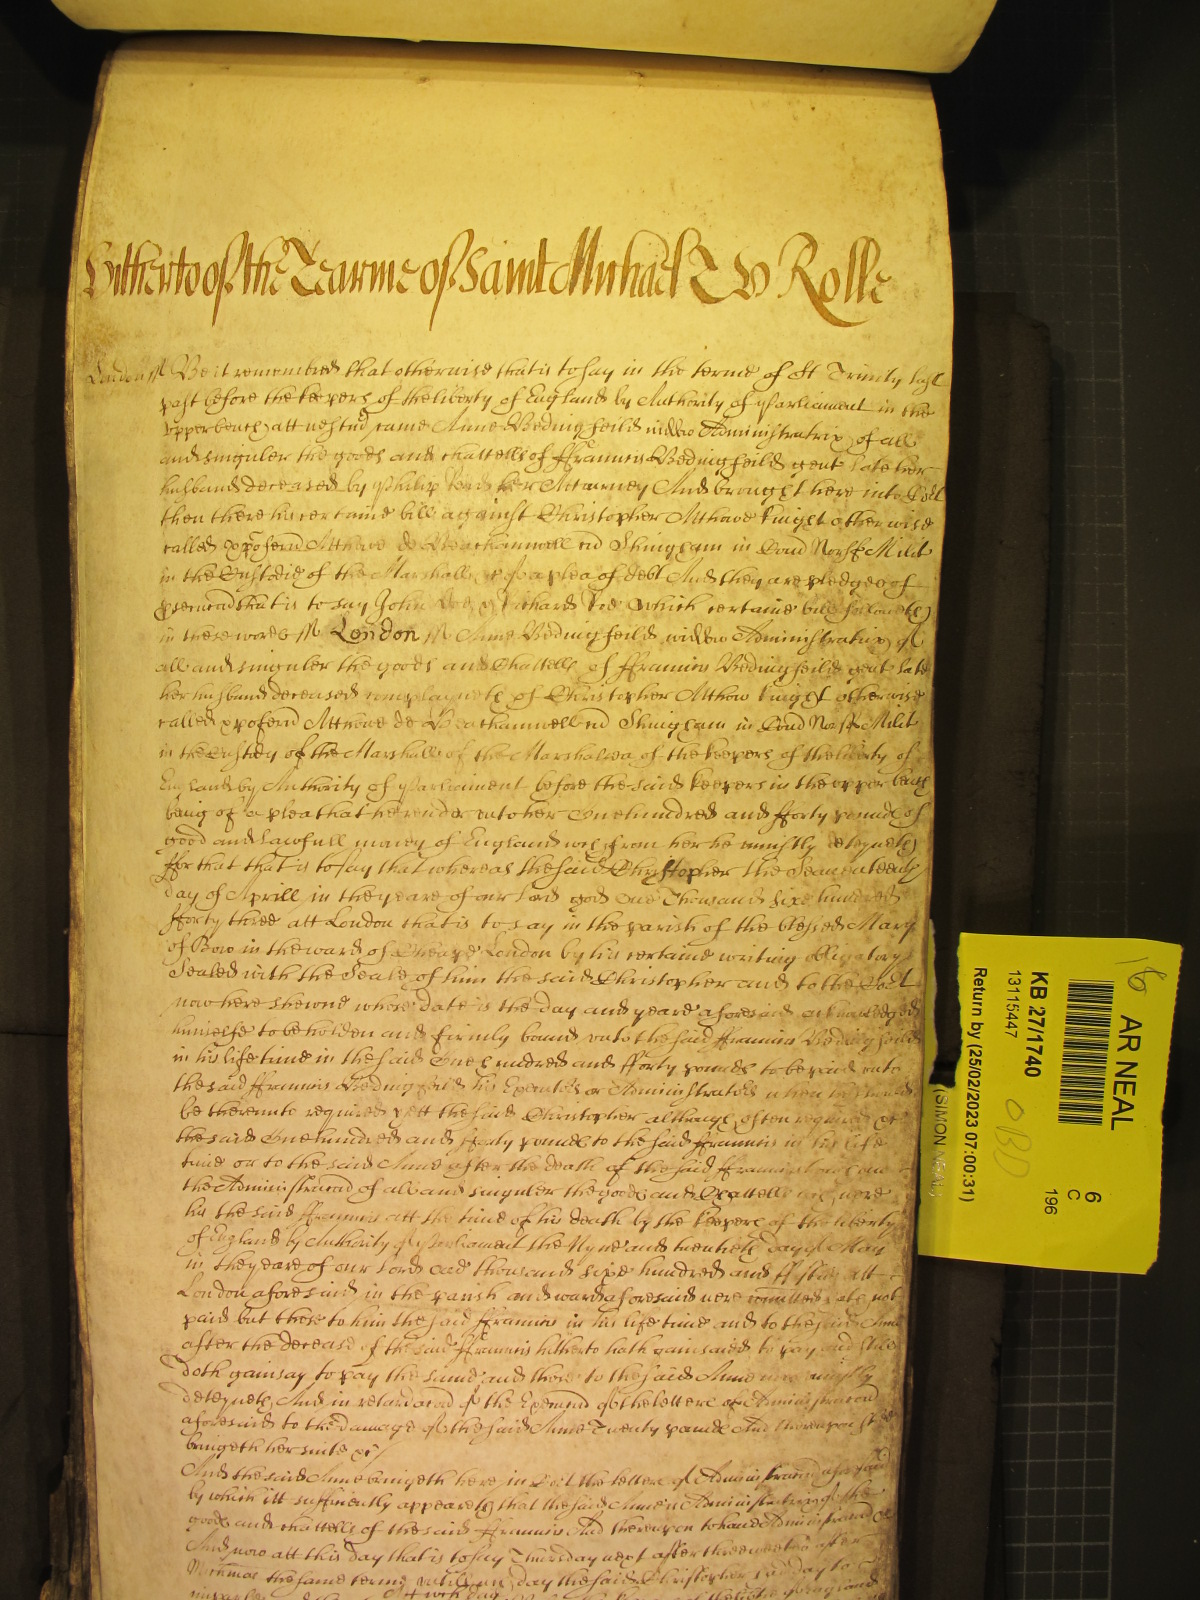 Hitherto of the Tearme of Saint Michael T W Rolle
London ss Be it remembred that otherwise that is to say in the terme of St Trinity last
past before the keepers of the liberty of England by Authority of Parliament in the
upper bench att Westmd came Anne Bedingfeild widdow Administratrix of all
and singuler the goods and chattells of ffrauncis Bedingfeild gent late her
husband deceased by Philip her Attourney And brought here into Court
then there his certaine bill against Christopher Athowe knight otherwise
called Athowe de Beachamwell Shingham in Norff Milit
in the Custodie of the Marshall &c of a plea of debt And they are pledges of
that is to say John Doe & Richard Roe which certaine bill followeth
in these words ss London ss Anne Bedingfeild widdow Administratrix of
all and singuler the goods and Chattells of ffrauncis Bedingfeild gent late
her husband deceased complayneth of Christopher Athow knight otherwise
called Athowe de Beachamwell Shingham in Norff Milit
in the Custody of the Marshall of the Marshalsea of the keepers of the liberty of
England by Authority of Parliament before the said keepers in the upper bench
being of a plea that he render unto her One hundred and fforty pounds of
good and lawfull money of England wch from her he uniustly deteyneth
ffor that that is to say that whereas the said Christopher the Seaventeenth
day of Aprill in the yeare of our Lord god One Thousand Sixe hundred
fforty three att London that is to say in the parish of the blessed Mary
of Bow in the ward of Cheape London by his certaine writing obligatory
Sealed with the Seale of him the said Christopher and to the Court
now here shewne whose date is the day and yeare aforesaid acknowledged
himselfe to be holden and firmly bound unto the said ffrauncis Bedingfeild
in his life time in the said One hundred and fforty pounds to be paid unto
the said ffrauncis Bedingfeild his Executors or Administrators when he should
be thereunto required yett the said Christopher although often required &c
the said One hundred and fforty pounds to the said ffrauncis in his life
time or to the said Anne after the death of the said ffrauncis
the Administracon of all and singuler the goods and Chattells were
his the said ffrauncis att the time of his death by the keepers of the liberty
of England by Authority of Parliament the Nyne and twentieth day of May
in the yeare of our Lord One thousand sixe hundred and ffiftie att
London aforesaid in the parish and ward aforesaid were comitted hath not
paid but those to him the said ffrauncis in his life time and to the said Anne
after the decease of the said ffrauncis hitherto hath gainsaied to pay and still
doth gainsay to pay the same and those to the said Anne now uniustly
deteyneth And in retardacon of the Execucon of the letters of Administracon
aforesaid to the damage of the said Anne Twenty pounds And thereupon she
bringeth her suite &c
And the said Anne bringeth here in Court the letters of Administracon aforesaid
by which itt sufficiently appeareth that the said Anne is Administratrix of the
goods and chattells of the said ffrauncis And thereupon to have Administracon &c
And now att this day that is to say Thursday next after three weekes after
the same terme untill wch day the said Christopher had day to
AR NEAL
KB 27/1740
13115447
Return by (25/02/2023 07:00:31)
(SIMON NEAL)
6
C
196
16